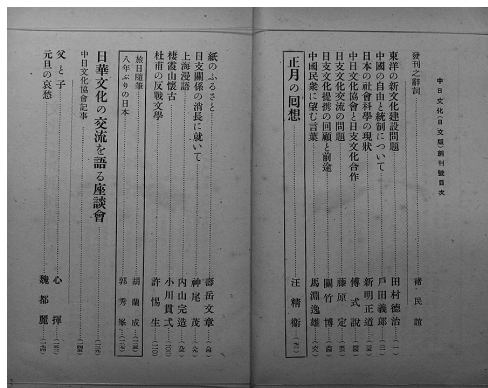 中日文化（日文版）創刊號目次
發刊之辭詞 褚民誼
東洋の新文化建設問題 田村德治（一）
中國の自由と統制について 戶田義郎
日本の社會科學の現狀 新明正道
中日文化協會と日支文化合作 傅式說
日支文化交流の問題 藤原定
日支文化提携の回顧と前途 關竹博
中國民衆に望む言葉 馬淵逸雄
正月の回想 汪精衞
紙のふるさと 壽岳文章
日支關係の消長に就いて 神尾茂
上海漫語 內山完造
棲霞山懷古 小川貫弌
杜甫の反戰文學 許惕生
旅日隨筆 胡蘭成
八年ぶりの日本 郭秀峯
日華文化の交流を語る座談會
中日文化協會記事
父と子 心揮
元旦の哀愁 魏都麗